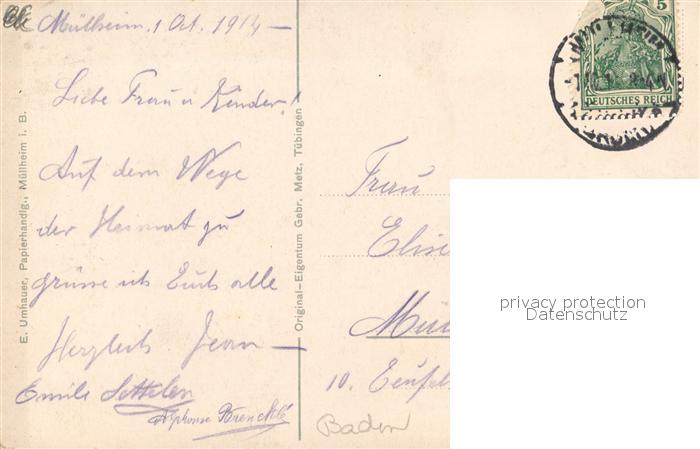 Müllheim, 1 Oct. 1914 —
Liebe Frau u Kinder!
Auf dem Wege
der Heimat zu
grüsse ich Euch alle
Herzlich. Jean —
Emile Settelen
Alphonse Brencklé
E. Umhauer, Papierhandlg., Müllheim i. B.
Original-Eigentum Gebr. Metz, Tübingen
5
DEUTSCHES REICH
Frau
Elise
10.
Baden
privacy protection
Datenschutz